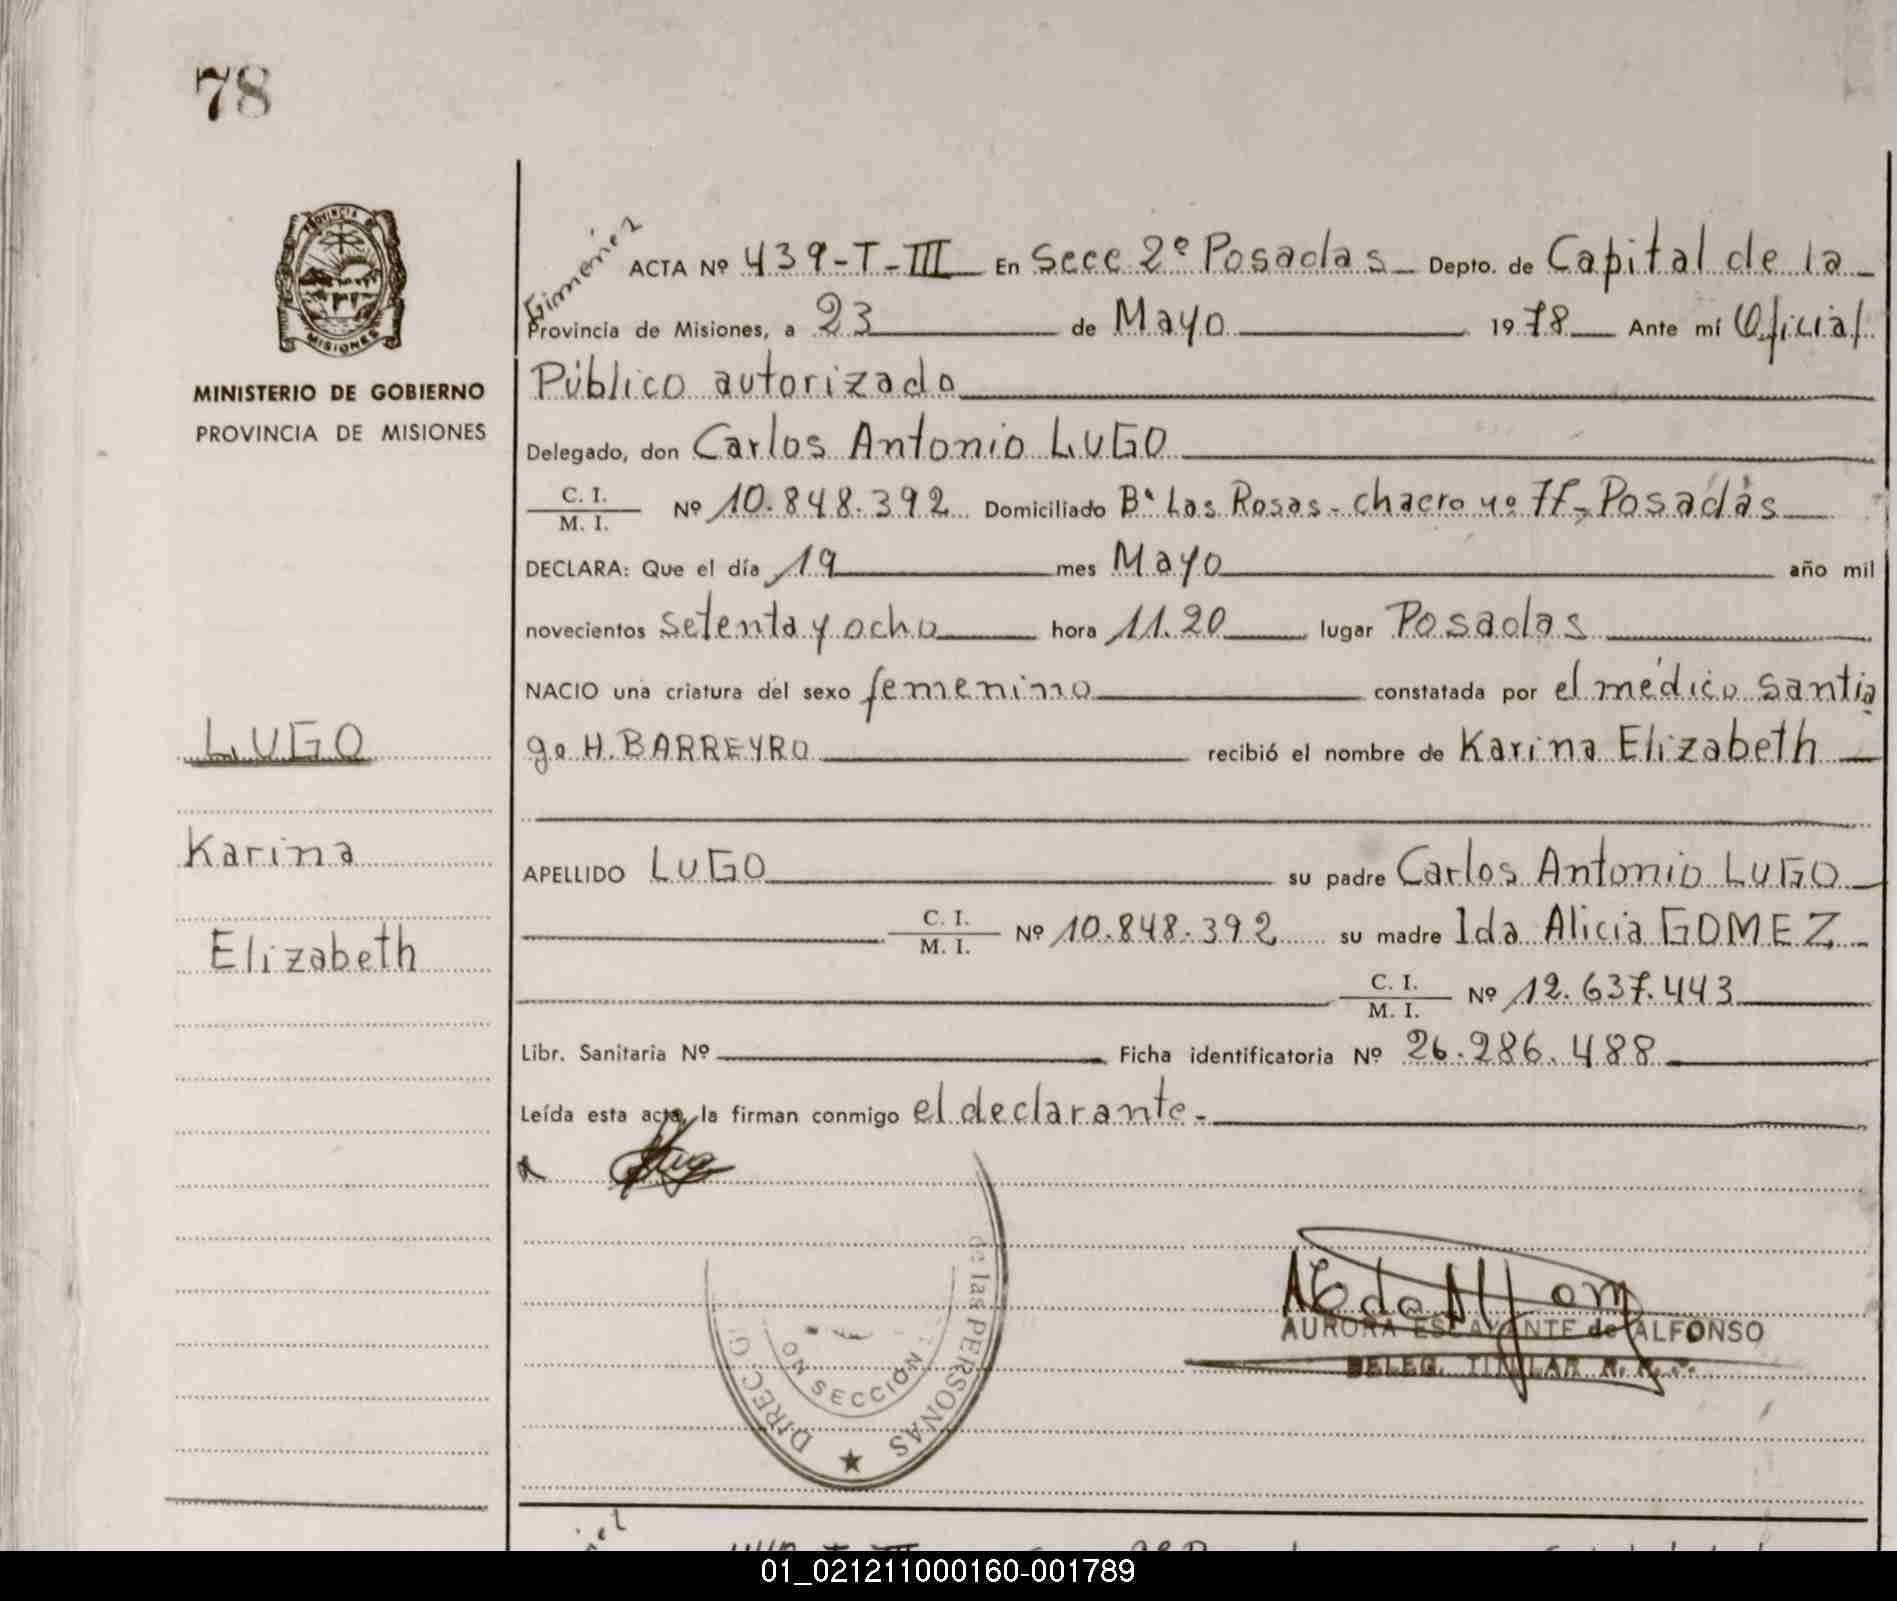 78
PROVINCIA DE
MISIONES
MINISTERIO DE GOBIERNO
PROVINCIA DE MISIONES
LUGO
Karina
Elizabeth
Gimenez
ACTA Nº 439-T-III En Secc 2º Posadas Depto. de Capital de la
Provincia de Misiones, a 23 de Mayo 1978 Ante mí Oficial
Público autorizado
Delegado, don Carlos Antonio LUGO
C. I.
M. I. Nº 10.848.392 Domiciliado Bº Las Rosas - chacra nº 77, Posadas
DECLARA: Que el día 19 mes Mayo año mil
novecientos setenta y ocho hora 11.20 lugar Posadas
NACIO una criatura del sexo femenino constatada por el médico Santia
go H. BARREYRO recibió el nombre de Karina Elizabeth
APELLIDO LUGO su padre Carlos Antonio LUGO
C. I.
M. I. Nº 10.848.392 su madre Ida Alicia GOMEZ
C. I.
M. I. Nº 12.637.443
Libr. Sanitaria Nº Ficha identificatoria Nº 26.286.488
Leída esta acta, la firman conmigo el declarante.-
de las PERSONAS ★ DIREC. G
ON SECCIÓN
AURORA ESCAYANTE de ALFONSO
DELEG. TITULAR
01_021211000160-001789